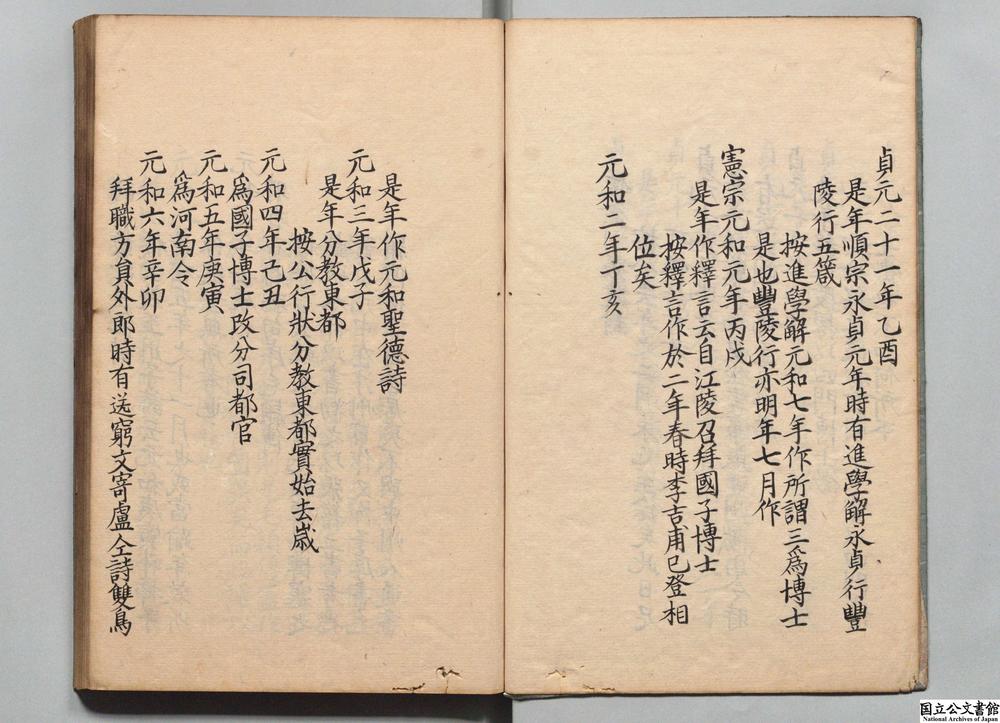 貞元二十一年乙酉
是年順宗永貞元年時有進學解永貞行豐
陵行五箴
按進學解元和七年作所謂三爲博士
是也豐陵行亦明年七月作
憲宗元和元年丙戌
是年作釋言云自江陵召拜國子博士
按釋言作於二年春時李吉甫已登相
位矣
元和二年丁亥
是年作元和聖德詩
元和三年戊子
是年分教東都
按公行狀分教東都實始去歲
元和四年己丑
爲國子博士改分司都官
元和五年庚寅
爲河南令
元和六年辛卯
拜職方員外郎時有送窮文寄盧仝詩雙鳥
国立公文書館
National Archives of Japan